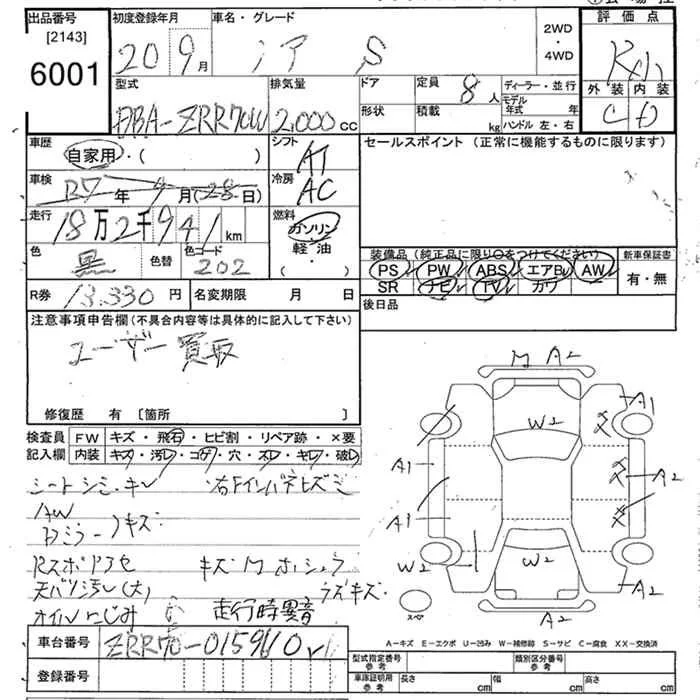 出品番号 初度登録年月 車名・グレード 評価点
[2143]
6001
20 9月 S
2WD
・
4WD
型式 排気量 ドア 定員 8人 ディーラー・並行 外装 内装
DBA-ZRR70W 2,000cc 形状 積載 kg モデル年式 年
ハンドル 左・右
C D
車歴 シフト セールスポイント (正常に機能するものに限ります)
自家用・( )
AT
車検 冷房
R7年9月(28日)
AC
走行 燃料
18万2千941km
ガソリン
軽・油
・( )
色 黒 色替 色コード 202
装備品 (純正品に限り○をつけてください) 新車保証書
PS PW ABS エアB AW
SR ナビ TV カワ
有・無
R券 13,330円 名変期限 月 日
後日品
注意事項申告欄(不具合内容等は具体的に記入して下さい)
ユーザー買取
修復歴 有 [箇所 ]
検査員 FW キズ・飛石・ヒビ割・リペア跡・×要
記入欄 内装 キズ・汚レ・コゲ・穴・スレ・キレ・破レ
シートシミ・キレ
AW
キズ
天バリ汚レ(大) ラズキズ
オイルにじみ 走行時異音
M A2
W2
A1
A1
A2
A1
W2
W2
A2
A2
スペア
A-キズ E-エクボ U-凹み W-補修跡 S-サビ C-腐食 XX-交換済
車台番号 ZRR70-0159610
登録番号
型式指定番号 参考 類別区分番号 参考
車庫証明用 参考 長さ cm 幅 cm 高さ cm